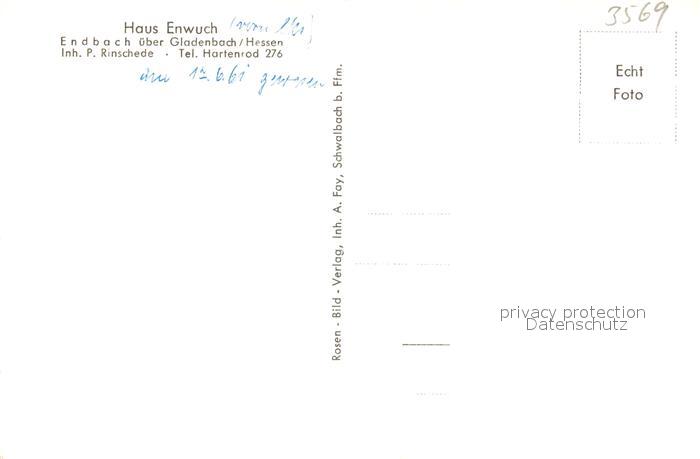 Haus Enwuch
Endbach über Gladenbach/Hessen
Inh. P. Rinschede · Tel. Hartenrod 276
am 12.6.61 gewesen
Rosen - Bild - Verlag, Inh. A. Fay, Schwalbach b. Ffm.
3569
Echt
Foto
privacy protection
Datenschutz